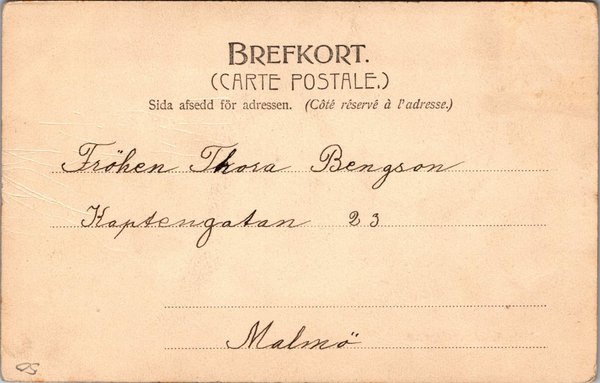 BREFKORT.
(CARTE POSTALE.)
Sida afsedd för adressen. (Côté réservé à l'adresse.)
Fröken Thora Bengson
Kaptengatan 23
Malmö
50